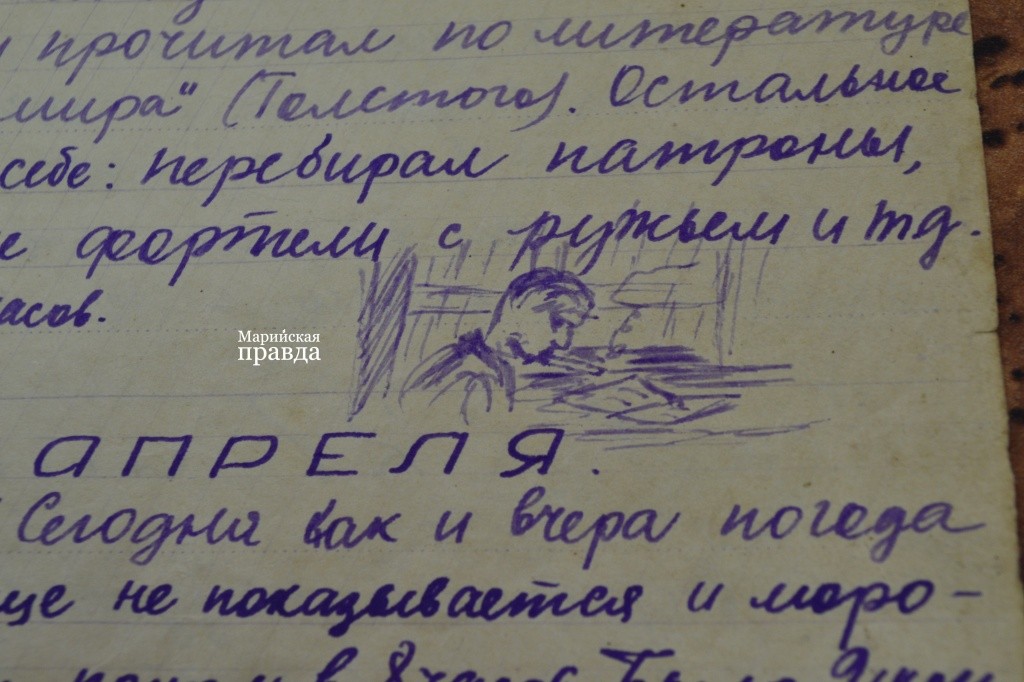 и прочитал по литературе
мира" (Толстого). Остальное
себе: перебирал патроны,
е фортели с ружьем и тд.
часов.
Марийская
правда
АПРЕЛЯ.
Сегодня как и вчера погода
ще не показывается и моро-
в 8 часов